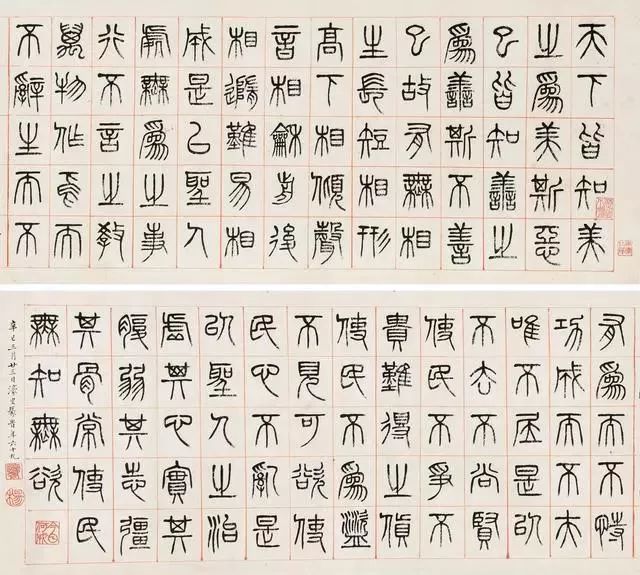 天下皆知美
之爲美斯惡
已皆知善之
爲善斯不善
已故有無相
生長短相形
高下相傾聲
音相龢前後
相隨難易相
成是以聖人
處無爲之事
行不言之教
萬物作焉而
不辭生而不
有爲而不恃
功成而不夫
唯不居是以
不去不尚賢
使民不爭不
貴難得之貨
使民不爲盜
不見可欲使
民心不亂是
以聖人之治
虛其心實其
腹弱其志彊
其骨常使民
無知無欲
辛巳三月廿三日濠叟篆時年六十九